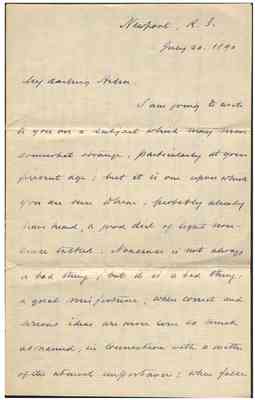 Newport, R. I.
July 20. 1890
My darling
I am going to write
to you on a subject which may seem
somewhat strange, particularly at your
present age; but it is one upon which
you are sure to hear, probably already
have heard, a good deal of light non-
sense talked. Nonsense is not always
a bad thing; but it is a bad thing,
a great misfortune, when correct and
serious ideas are more
in connection with a matter
of the utmost importance; when false